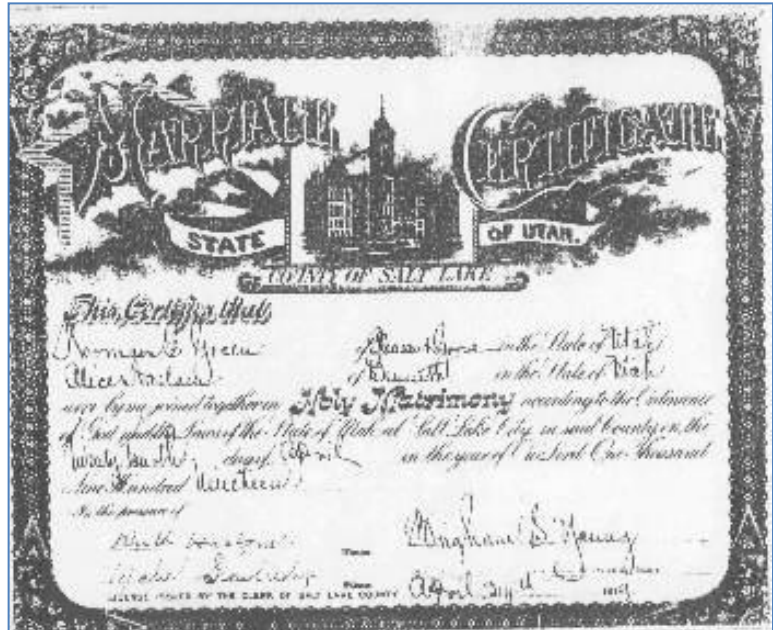 MARRIAGE CERTIFICATE
STATE OF UTAH.
COUNTY OF SALT LAKE
This Certifies that
Norman C Green of Pleasant Grove in the State of Utah
Alice in the State of Utah
were by me joined together in Holy Matrimony according to the Ordinance
of God and the Laws of the State of Utah at Salt Lake City in said County, on the
Twenty fourth day of April in the year of Our Lord One Thousand
Nine Hundred Nineteen
In the presence of
Brigham S. Young
April 24th 1919
LICENSE ISSUED BY THE CLERK OF SALT LAKE COUNTY